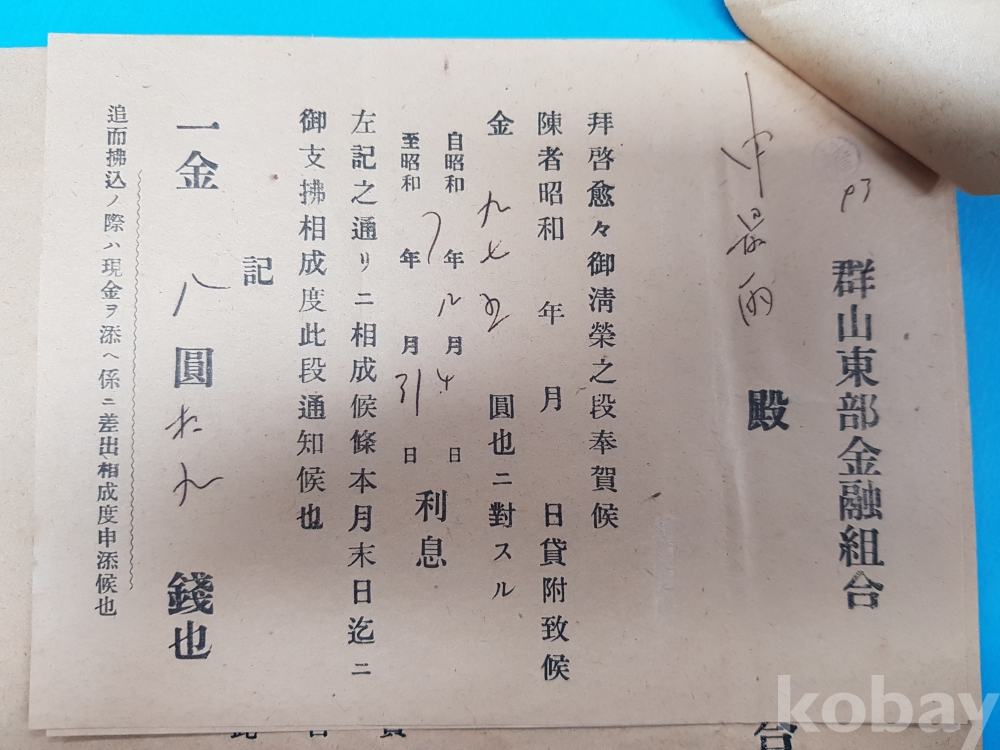 群山東部金融組合
殿
拜啓愈々御淸榮之段奉賀候
陳者昭和 年 月 日貸附致候
金 九七五 圓也ニ對スル
自昭和 年 月 日
至昭和 年 月31日 利息
左記之通リニ相成候條本月末日迄ニ
御支拂相成度此段通知候也
記
一金 八 圓 九 錢也
追而拂込ノ際ハ現金ヲ添ヘ係ニ差出相成度申添候也
kobay